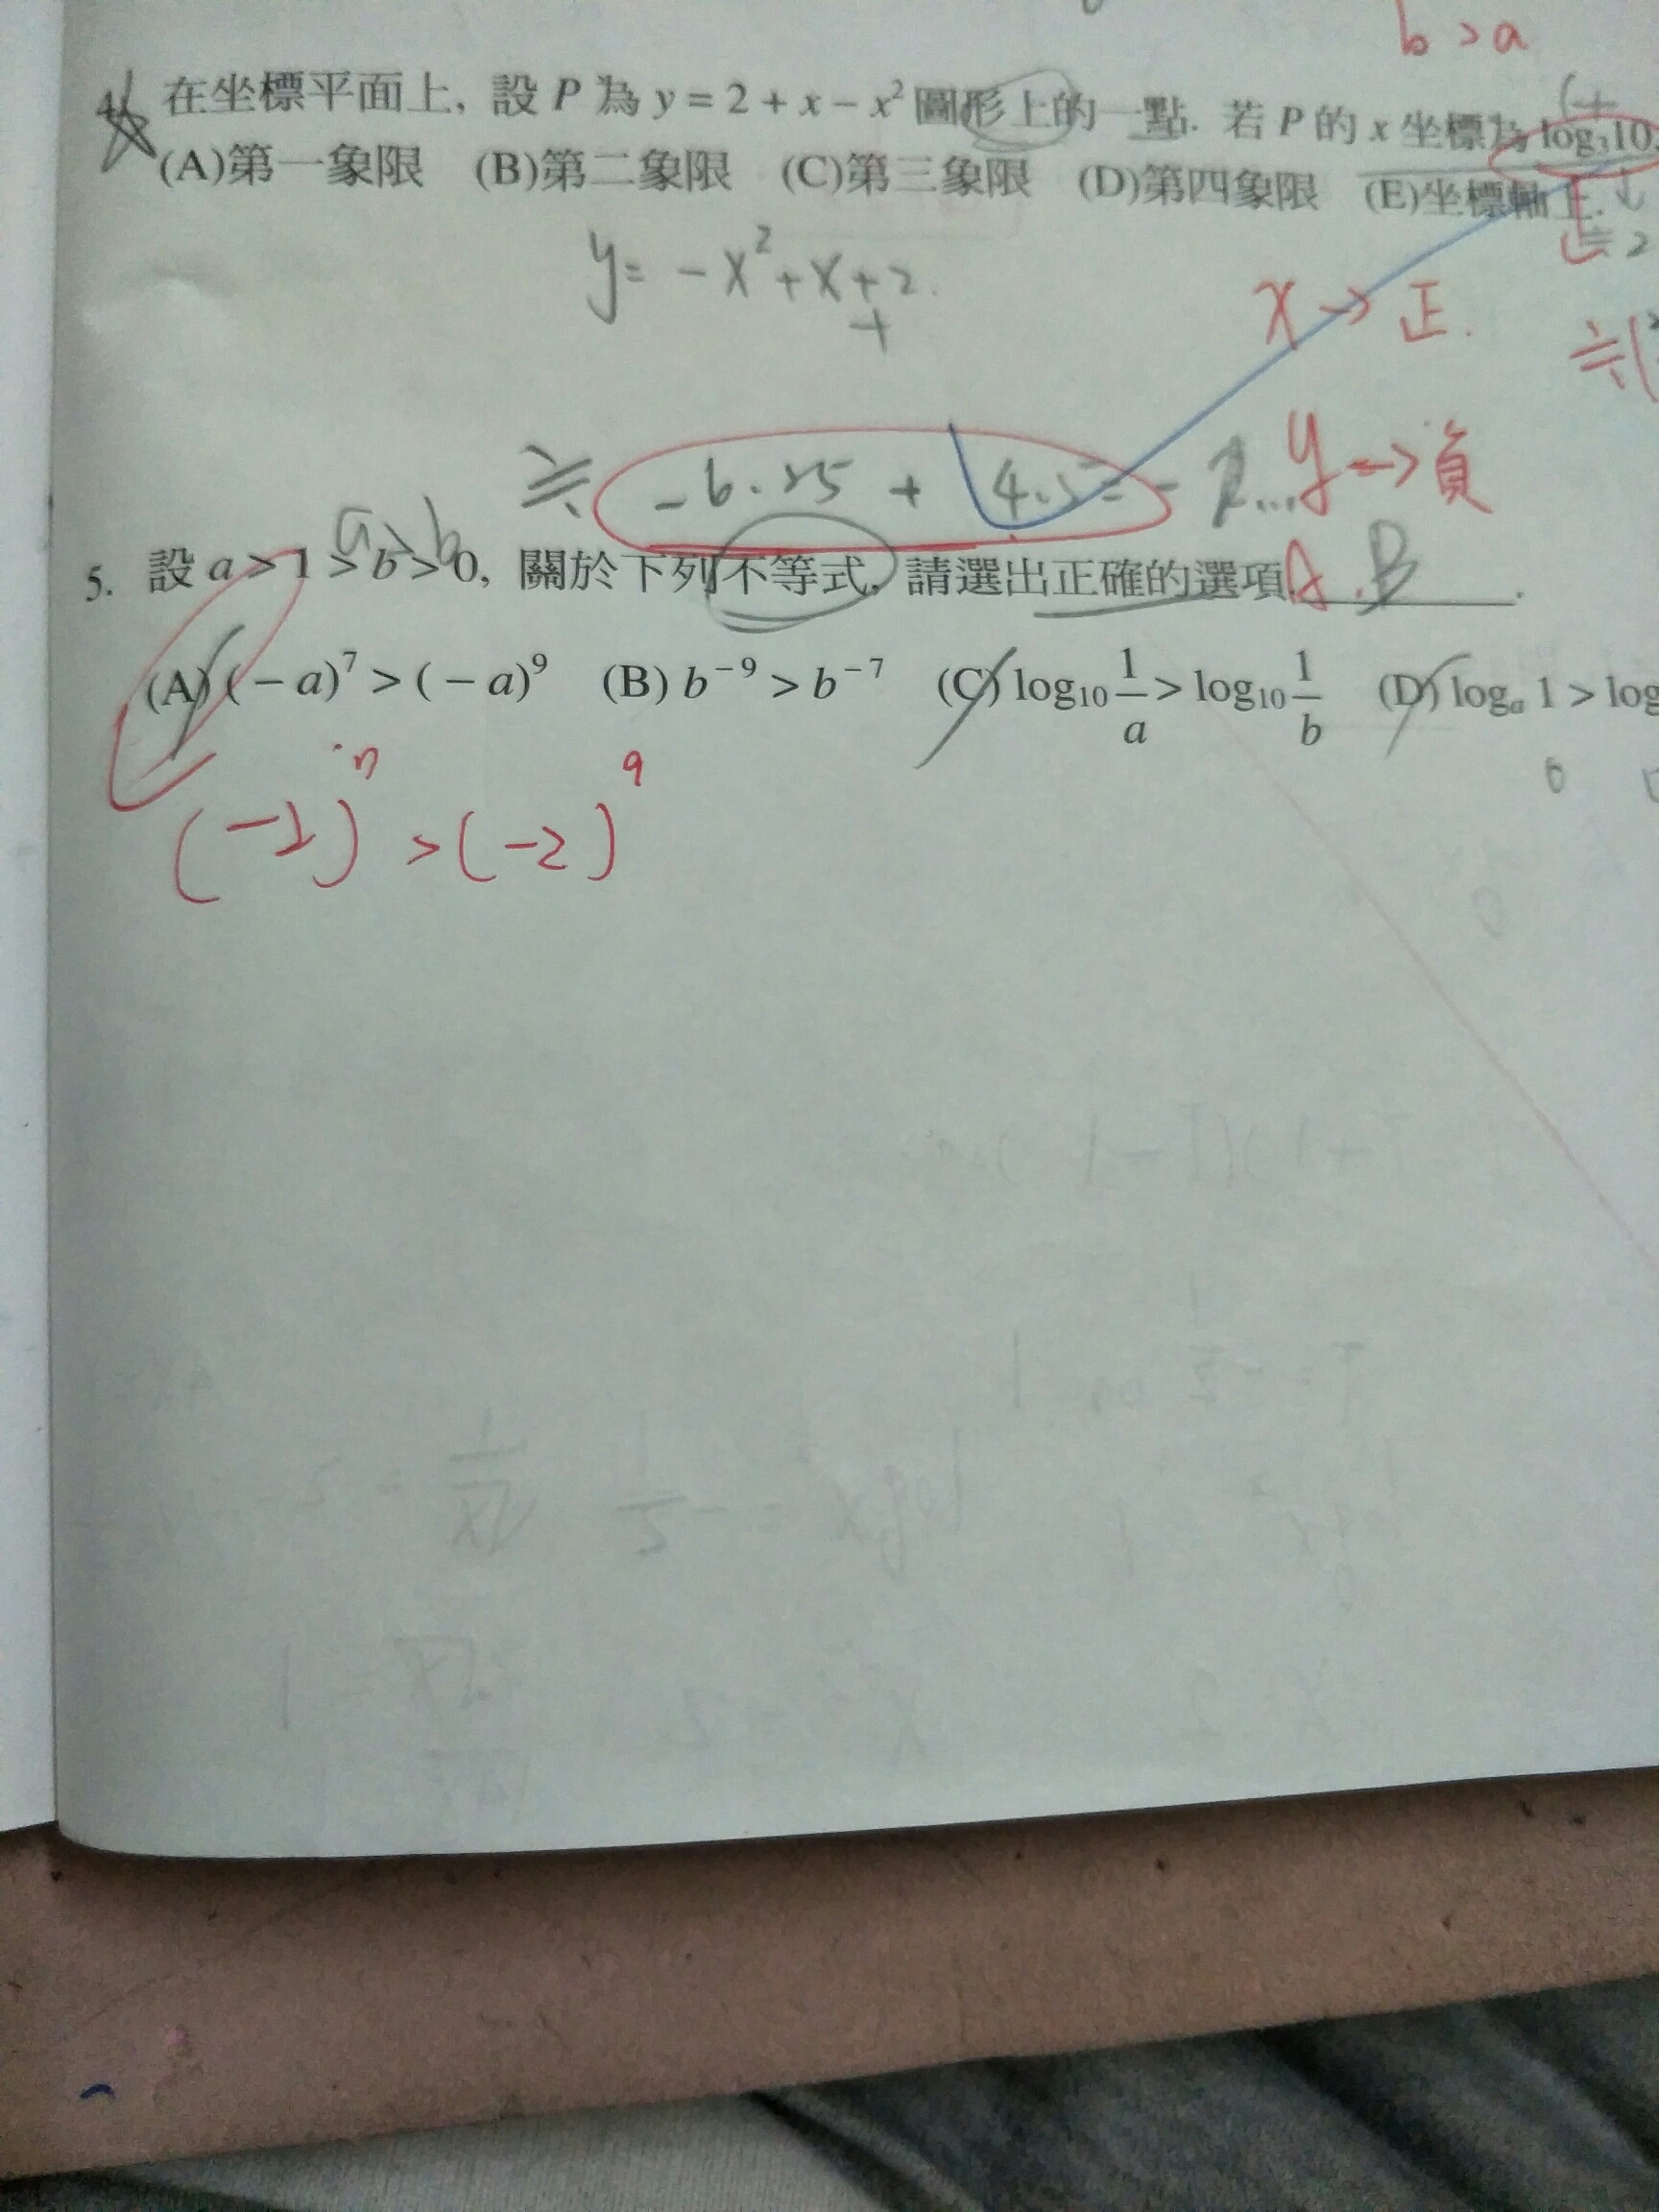 b > a
在坐標平面上, 設 P 為 y = 2 + x − x² 圖形上的一點. 若 P 的 x 坐標為 log₃10,
(A)第一象限 (B)第二象限 (C)第三象限 (D)第四象限 (E)坐標軸上.
≒ 2
y = −x² + x + 2
x → 正.
≒ −6.25 + 4.5 = −
y → 負
a > b
5. 設 a > 1 > b > 0, 關於下列不等式, 請選出正確的選項 A.B .
(A) (− a)⁷ > (− a)⁹ (B) b⁻⁹ > b⁻⁷ (C) log₁₀ 1/a > log₁₀ 1/b (D) logₐ 1 > log
0
(−2)⁷ > (−2)⁹